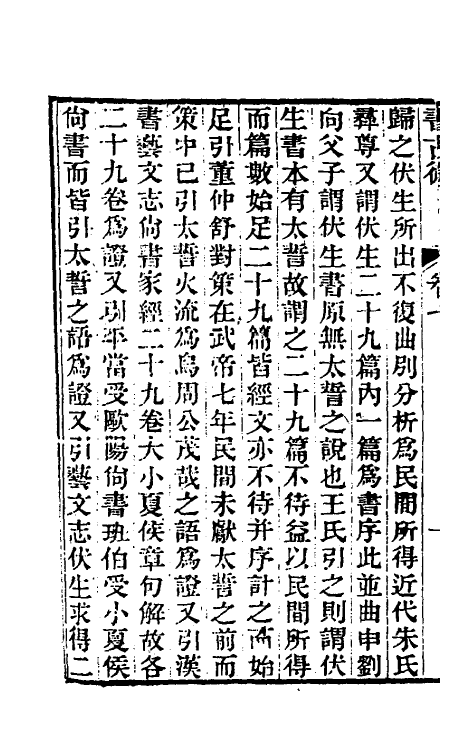 歸之伏生所出不復曲別分析爲民間所得近代朱氏
彞尊又謂伏生二十九篇內一篇爲書序此並曲申劉
向父子謂伏生書原無太誓之說也王氏引之則謂伏
生書本有太誓故謂之二十九篇不待益以民間所得
而篇數始足二十九篇皆經文亦不待并序計之而始
足引董仲舒對策在武帝七年民間未獻太誓之前而
策中已引太誓火流爲烏周公茂哉之語爲證又引漢
書藝文志尙書家經二十九卷大小夏侯章句解故各
二十九卷爲證又平當受歐陽尙書班伯受小夏侯
尙書而皆引太誓之語爲證又引藝文志伏生求得二